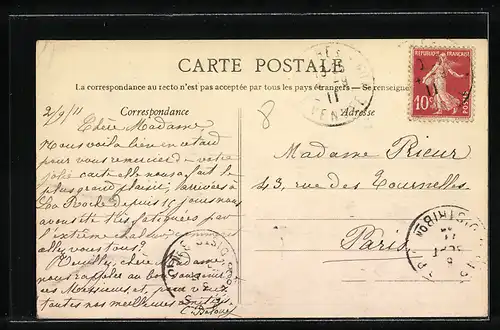 CARTE POSTALE
La correspondance au recto n'est pas acceptée par tous les pays étrangers — Se renseigner
Correspondance
Adresse
REPUBLIQUE FRANÇAISE
10c
POSTES
2/9/11
Chère Madame
Nous voilà bien en retard
pour vous remercier de votre
jolie carte elle nous a fait le
plus grand plaisir, arrivées à
La Roche depuis 15 jours nous
avons été très fatiguées par
l'extrême chaleur
allez vous tous?
Veuillez, chère Madame,
nous rappeler au bon souvenir
ces Messieurs et, pour vous
toutes nos meilleures
8
Madame Rieur
43, rue des Tournelles
Paris